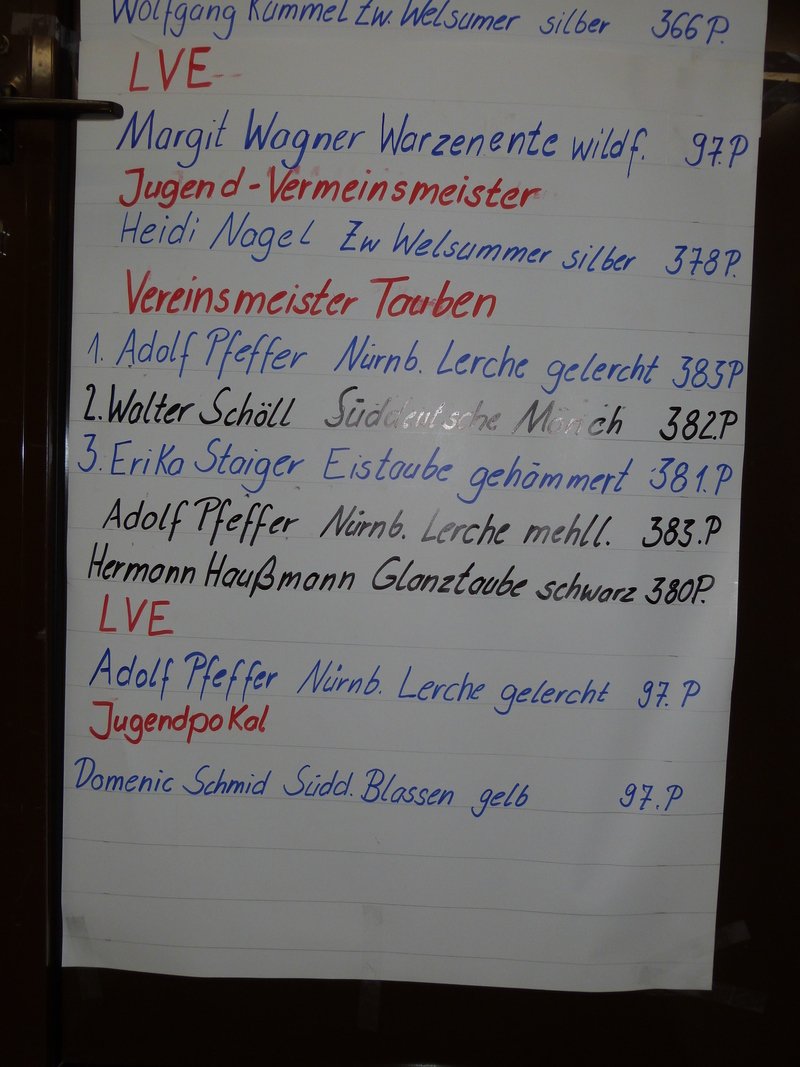 Wolfgang Kümmel Zw. Welsumer silber 366 P.
LVE
Margit Wagner Warzenente wildf. 97.P
Jugend-Vermeinsmeister
Heidi Nagel Zw Welsummer silber 378 P.
Vereinsmeister Tauben
1. Adolf Pfeffer Nürnb. Lerche gelercht 383P
2. Walter Schöll Süddeutsche Mönch 382.P
3. Erika Staiger Eistaube gehämmert 381.P
Adolf Pfeffer Nürnb. Lerche mehll. 383.P
Hermann Haußmann Glanztaube schwarz 380P.
LVE
Adolf Pfeffer Nürnb. Lerche gelercht 97. P
Jugendpokal
Domenic Schmid Südd. Blassen gelb 97.P